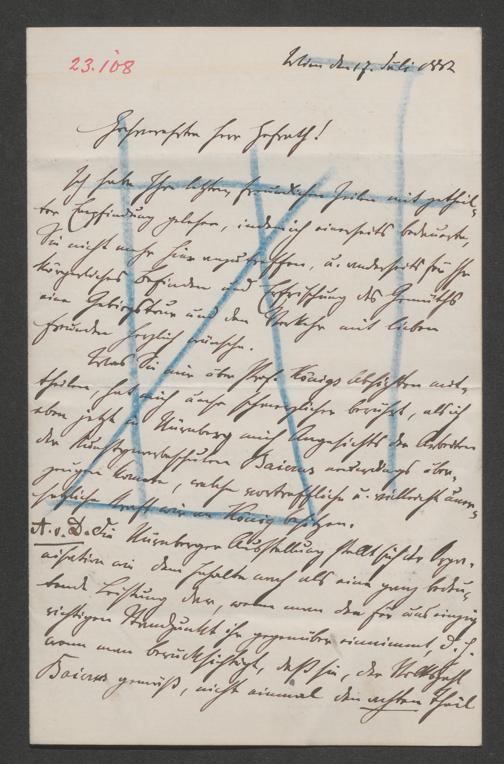 23.108
Wien den 17. Juli 1882
Hochverehrter Herr Hofrath!
Ich habe Ihre letzten freundlichen Zeilen mit getheil-
ter Empfindung gelesen, indem ich einerseits bedauerte,
Sie nicht mehr hier anzutreffen, u. anderseits für Ihr
körperliches Befinden und Erfrischung des Gemüths
eine Gebirgstour und den Verkehr mit lieben
Freunden herzlich wünsche.
Was Sie mir über Prof. Königs Absichten mit-
theilen, hat mich umso schmerzlicher berührt, als ich
eben jetzt in Nürnberg mich Angesichts der Arbeiten
der Kunstgewerbeschulen Baierns neuerdings über-
zeugen konnte, welche vortreffliche u. vielleicht uner-
setzliche Kraft wir an König besitzen.
A. v. D. Die Nürnberger Ausstellung stellt sich der Orga-
nisation wie dem Inhalte nach als eine ganz bedeu-
tende Leistung dar, wenn man den für uns einzig
richtigen Standpunkt ihr gegenüber einnimmt, d. h.
wenn man berücksichtigt, daß sie, der Volkszahl
Baierns gemäß, nicht einmal den achten Theil